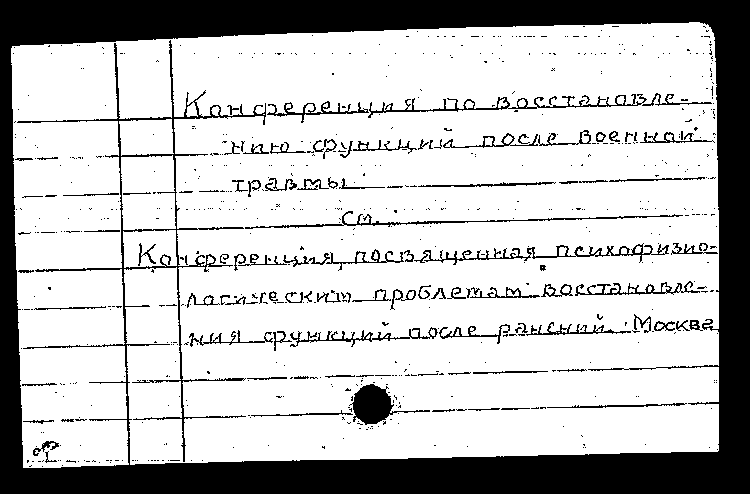 Конференция по восстановле-
нию функций после военной
травмы
см.
Конференция, посвященная психофизио-
логическим проблемам восстановле-
ния функций после ранений. Москва